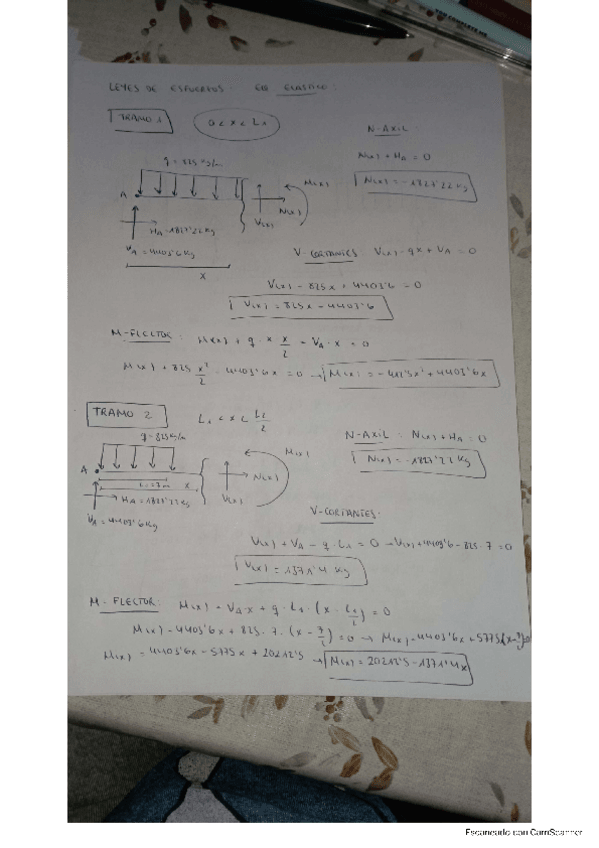 LEYES DE ESFUERZOS. EJE ELASTICO:
TRAMO 1
0 < x < L1
N-AXIL
N(x) + HA = 0
N(x) = -1827'22 Kg
q = 825 Kg/m
A
M(x)
N(x)
V(x)
HA = 1827'22 Kg
VA = 4403'6 Kg
x
V-CORTANTES V(x) - qx + VA = 0
V(x) - 825x + 4403'6 = 0
V(x) = 825x - 4403'6
M-FLECTOR: M(x) + q · x x/2 - VA · x = 0
M(x) + 825 x²/2 - 4403'6x = 0 → M(x) = -412'5x² + 4403'6x
TRAMO 2
L1 < x < L2/2
N-AXIL = N(x) + HA = 0
N(x) = -1827'22 Kg
q = 825 Kg/m
A
M(x)
N(x)
V(x)
L1 = 7m
x
HA = 1827'22 Kg
VA = 4403'6 Kg
V-CORTANTES:
V(x) + VA - q · L1 = 0 → V(x) + 4403'6 - 825 · 7 = 0
V(x) = 1371'4 Kg
M-FLECTOR: M(x) - VA · x + q · L1 · (x - L1/2) = 0
M(x) - 4403'6x + 825 · 7 · (x - 7/2) = 0 → M(x) - 4403'6x + 5775
M(x) = 4403'6x - 5775x + 20212'5 → M(x) = 20212'5 - 1371'4x
Escaneado con CamScanner